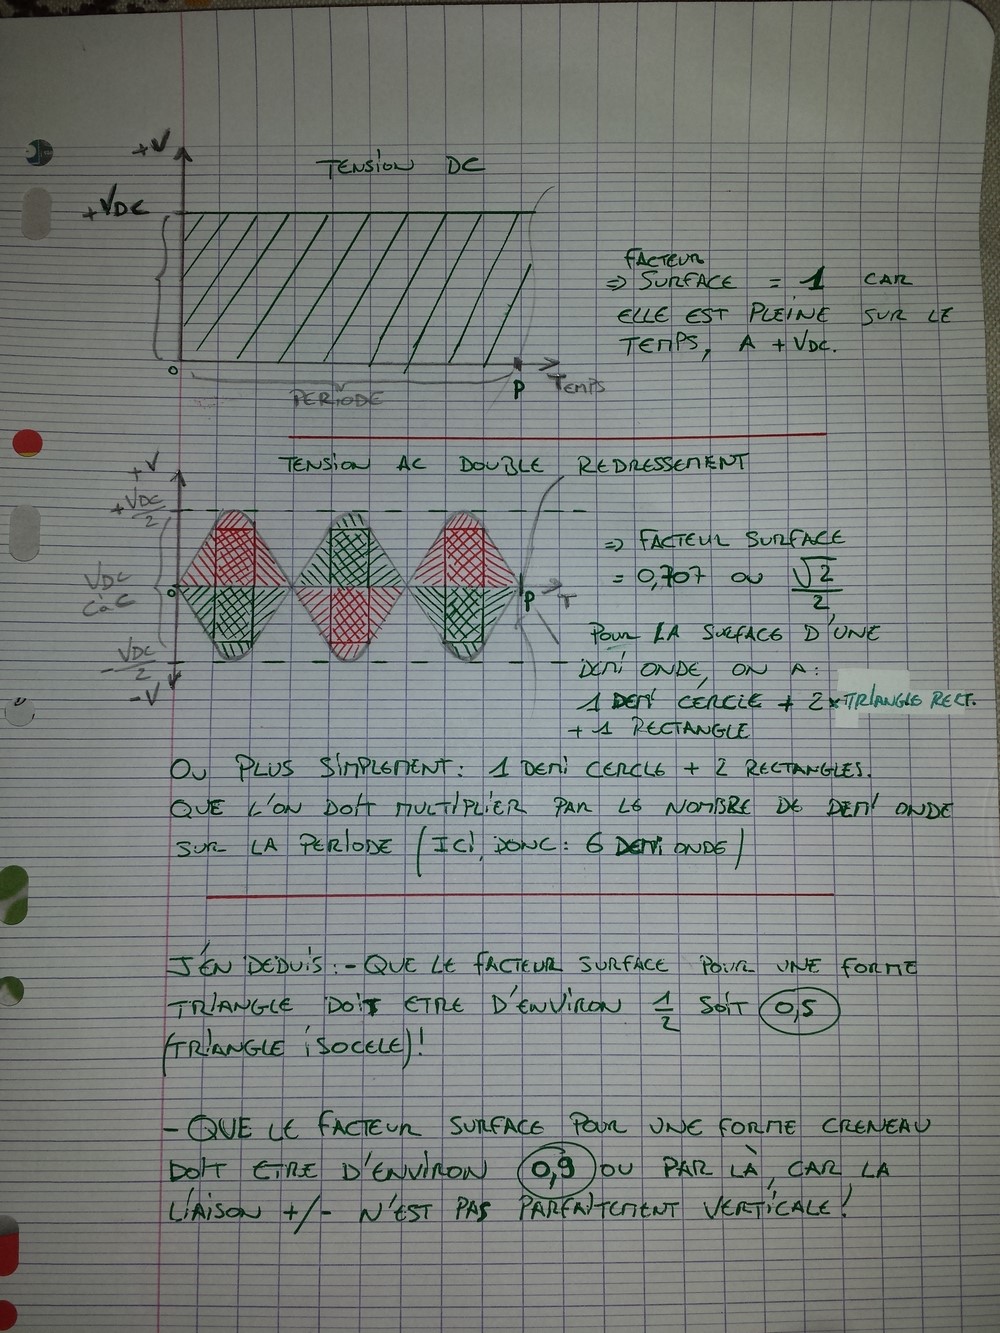 +V
TENSION DC
+VDC
FACTEUR
=> SURFACE = 1 CAR
ELLE EST PLEINE SUR LE
TEMPS, A + VDC.
0
P
TEMPS
PERIODE
TENSION AC DOUBLE REDRESSEMENT
+V
+VDC/2
=> FACTEUR SURFACE
= 0,707 OU √2/2
VDC
CàC
0
P
T
-VDC/2
-V
POUR LA SURFACE D'UNE
DEMI ONDE, ON A:
1 DEMI CERCLE + 2x TRIANGLE RECT.
+ 1 RECTANGLE
OU PLUS SIMPLEMENT: 1 DEMI CERCLE + 2 RECTANGLES.
QUE L'ON DOIT MULTIPLIER PAR LE NOMBRE DE DEMI ONDE
SUR LA PERIODE (ICI, DONC: 6 DEMI ONDE)
J'EN DEDUIS: - QUE LE FACTEUR SURFACE POUR UNE FORME
TRIANGLE DOIT ETRE D'ENVIRON 1/2 SOIT 0,5
(TRIANGLE ISOCELE)!
- QUE LE FACTEUR SURFACE POUR UNE FORME CRENEAU
DOIT ETRE D'ENVIRON 0,9 OU PAR LÀ, CAR LA
LIAISON +/- N'EST PAS PARFAITEMENT VERTICALE!